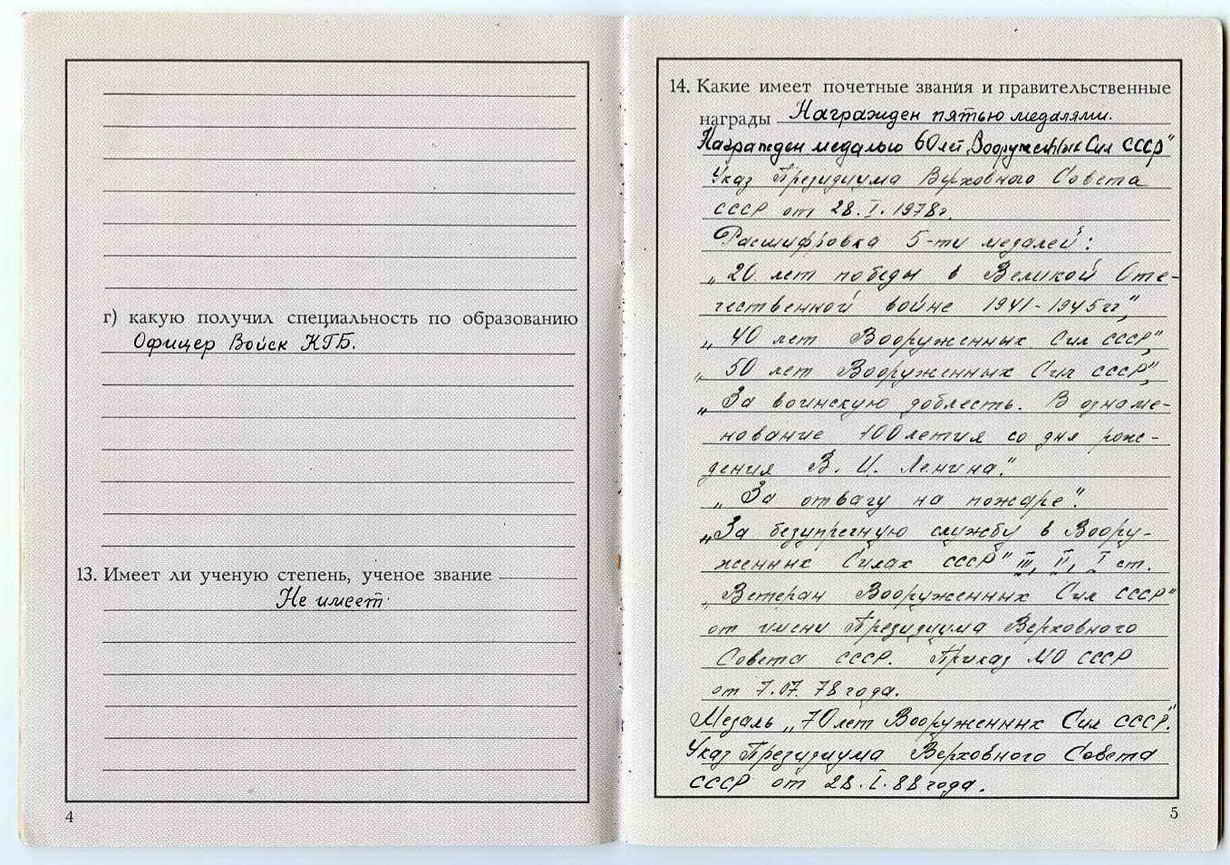 г) какую получил специальность по образованию
Офицер Войск КГБ.
13. Имеет ли ученую степень, ученое звание
Не имеет
4
14. Какие имеет почетные звания и правительственные
награды Награжден пятью медалями.
Награжден медалью 60 лет „Вооруженных Сил СССР"
Указ Президиума Верховного Совета
СССР от 28. I. 1978г.
Расшифровка 5-ти медалей:
„20 лет победы в Великой Оте-
чественной войне 1941-1945гг",
„40 лет Вооруженных Сил СССР",
„50 лет Вооруженных Сил СССР",
„За воинскую доблесть. В ознаме-
нование 100летия со дня рож-
дения В. И. Ленина".
„За отвагу на пожаре".
„За безупречную службу в Воору-
женных Силах СССР" III, II, I ст.
„Ветеран Вооруженных Сил СССР"
от имени Президиума Верховного
Совета СССР. Приказ МО СССР
от 7.07. 78 года.
Медаль „70 лет Вооруженных Сил СССР".
Указ Президиума Верховного Совета
СССР от 28. I. 88 года.
5